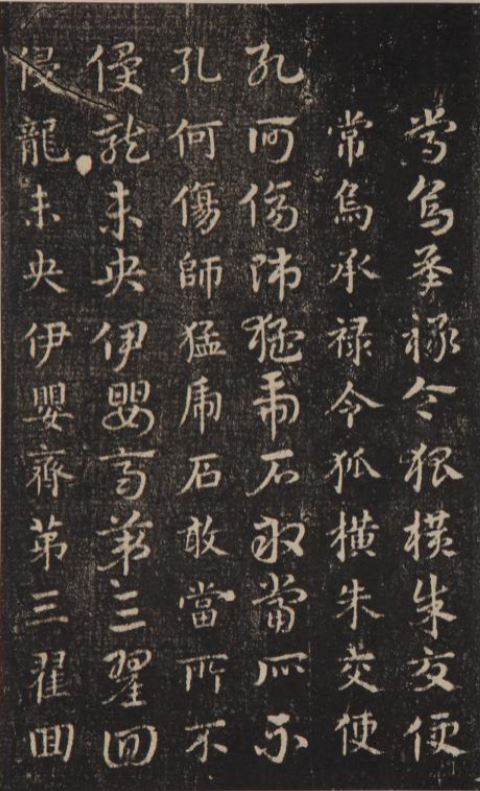 常烏承禄令狐横朱交便
常烏承禄令狐横朱交使
孔何傷師猛虎石敢當所不
孔何傷師猛虎石敢當所不
侵龍未央伊嬰齊第三翟回
侵龍未央伊嬰齊第三翟囬